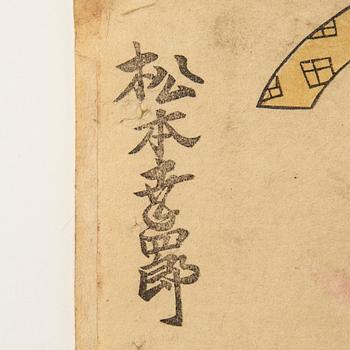 松本幸四郎